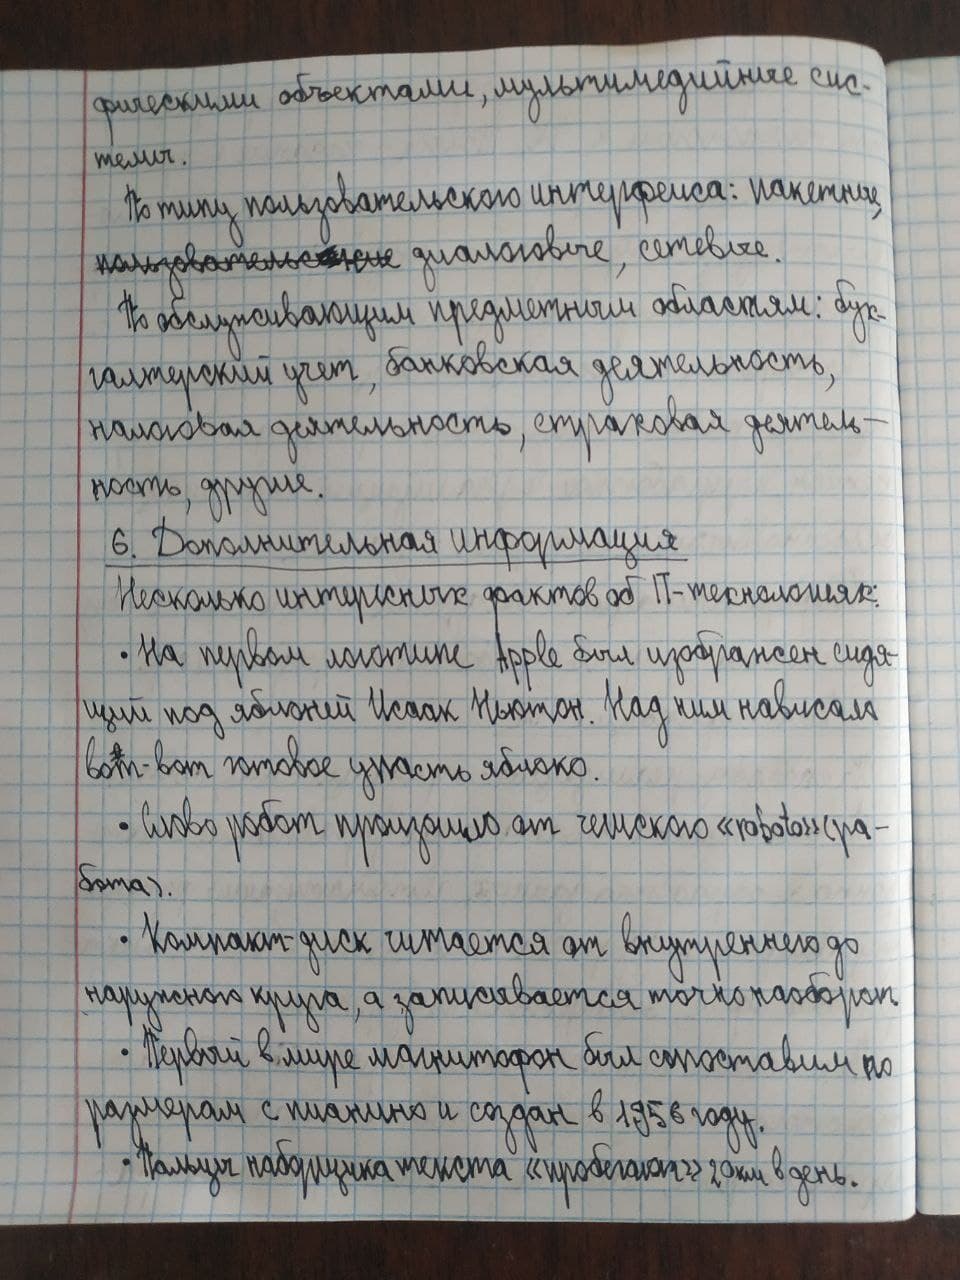 фическими объектами, мультимедийные сис-
темы.
По типу пользовательского интерфейса: пакетные,
диалоговые, сетевые.
По обслуживающим предметным областям: бух-
галтерский учет, банковская деятельность,
налоговая деятельность, страховая деятель-
ность, другие.
6. Дополнительная информация
Несколько интересных фактов об IT-технологиях:
• На первом логотипе Apple был изображен сидя-
щий под яблоней Исаак Ньютон. Над ним нависало
вот-вот готовое упасть яблоко.
• Слово робот произошло от чешского «robota» (ра-
бота).
• Компакт-диск читается от внутреннего до
наружного круга, а записывается точно наоборот.
• Первый в мире магнитофон был сопоставим по
размерам с пианино и создан в 1956 году.
• Пальцы наборщика текста «пробегают» 20км в день.